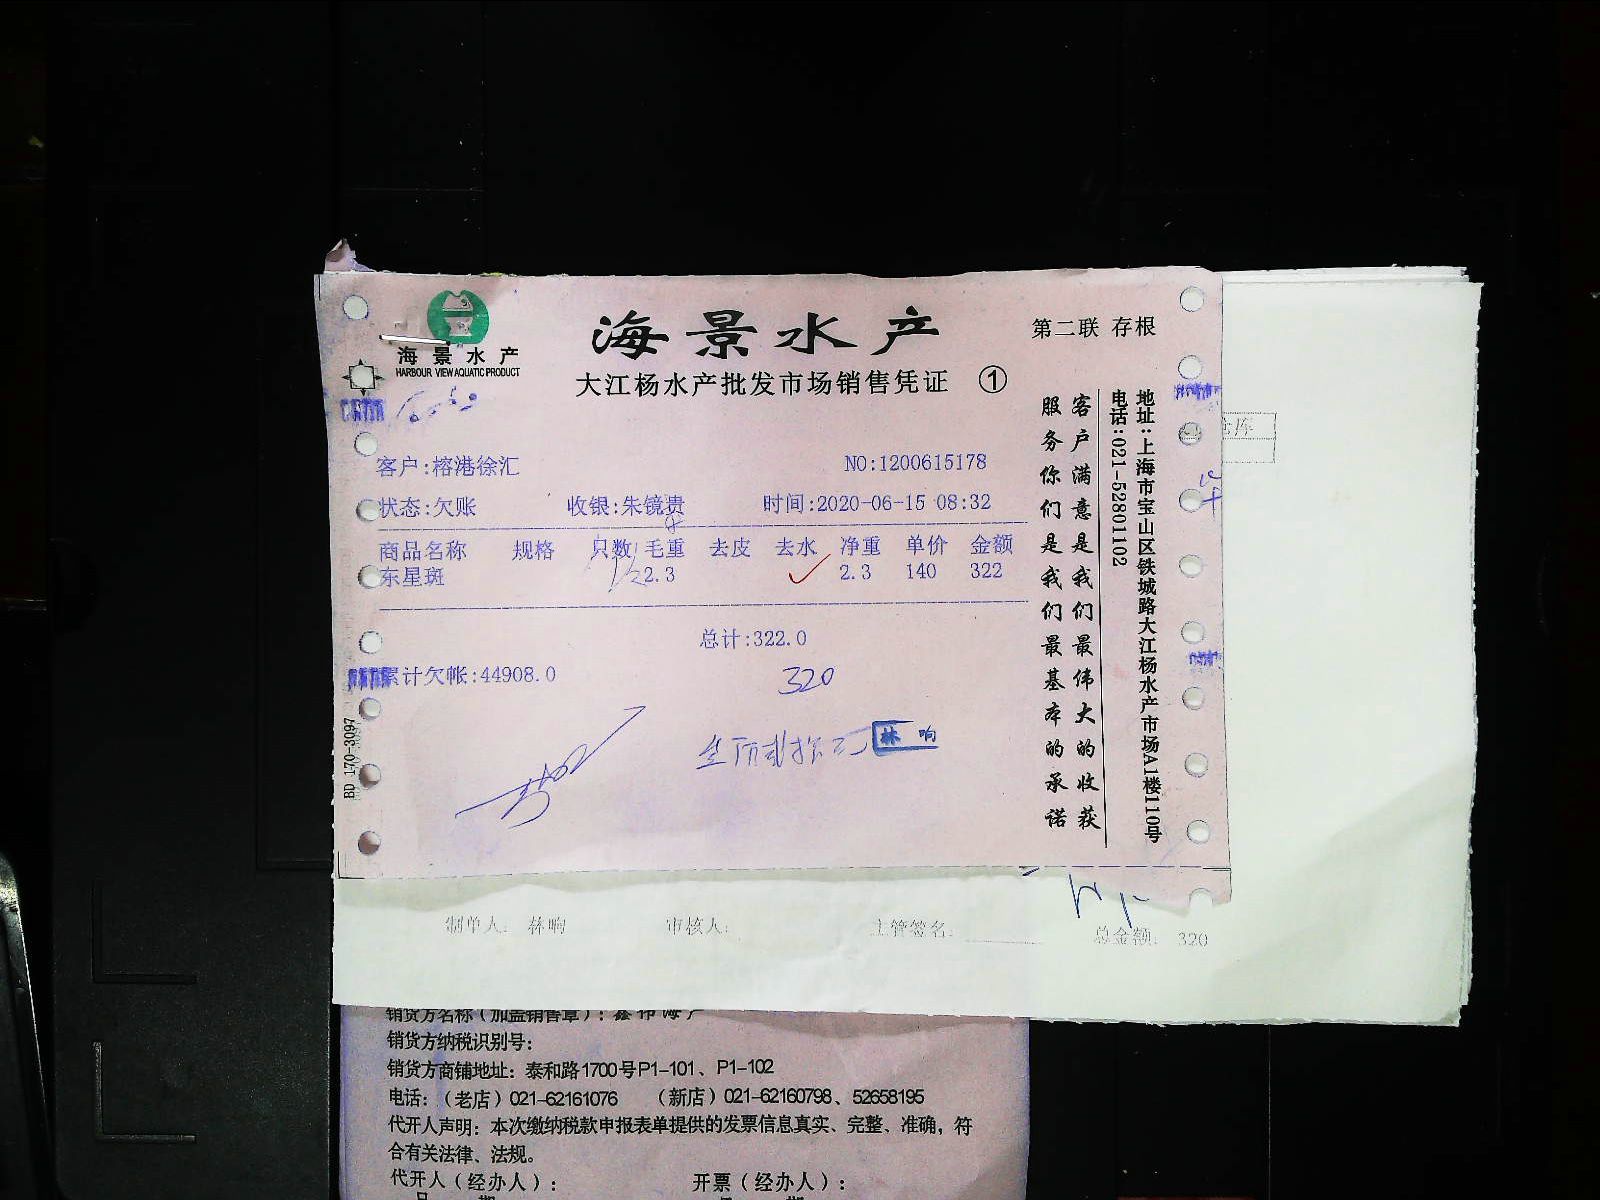 海景水产
HARBOUR VIEW AQUATIC PRODUCT
海景水产
大江杨水产批发市场销售凭证 ①
第二联 存根
客户:榕港徐汇 NO:1200615178
状态:欠账 收银:朱镜贵 时间:2020-06-15 08:32
商品名称 规格 只数 毛重 去皮 去水 净重 单价 金额
东星斑 2.3 2.3 140 322
总计:322.0
累计欠帐:44908.0
320
林响
BD 170-3097
客户满意是我们最伟大的收获
服务你们是我们最基本的承诺
地址:上海市宝山区铁城路大江杨水产市场A1楼110号
电话:021-52801102
仓库
制单人: 林响 审核人: 主管签名: 总金额: 320
销货方名称(加盖销售章):鑫伟海产
销货方纳税识别号:
销货方商铺地址:泰和路1700号P1-101、P1-102
电话:(老店)021-62161076 (新店)021-62160798、52658195
代开人声明:本次缴纳税款申报表单提供的发票信息真实、完整、准确,符
合有关法律、法规。
代开人(经办人): 开票(经办人):